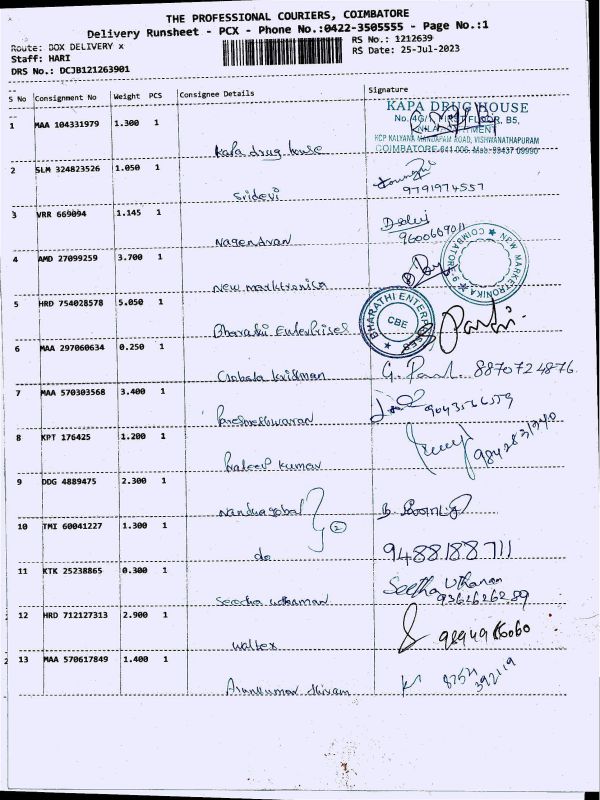 THE PROFESSIONAL COURIERS, COIMBATORE
Delivery Runsheet - PCX - Phone No.:0422-3505555 - Page No.:1
Route: BOX DELIVERY x
RS No.: 1212639
Staff: HARI
RS Date: 25-Jul-2023
DRS No.: DCJB121263901
S No Consignment No Weight PCS Consignee Details Signature
1 MAA 104331979 1.300 1
KAPA DRUG HOUSE
No. 4G/1, FIRST FLOOR, B5,
KCP KALYANA MANDAPAM ROAD, VISHWANATHAPURAM
COIMBATORE-641 006. Mob: 93437 09990
Kapa drug house
2 SLM 324823526 1.050 1
Sridevi 9791974557
3 VRR 669094 1.145 1
Nagendran 9600669011
4 AMD 27099259 3.700 1
NEW MARKETRONIKA
COIMBATORE
New marktronica
5 HRD 754028578 5.050 1
BHARATHI ENTERPRISES
CBE
Bharathi Enterprises
6 MAA 297060634 0.250 1
krishnan G. 8870724876
7 MAA 570303568 3.400 1
Parameshwaran
8 KPT 176425 1.200 1
kumar
9 DDG 4889475 2.300 1
Nandhagobal 2
10 TMI 60041227 1.300 1
do 9488188711
11 KTK 25238865 0.300 1
Seetha Uthaman
Seetha uthaman 9362626289
12 HRD 712127313 2.900 1
Waltex
13 MAA 570617849 1.400 1
Arunkumar Shivam